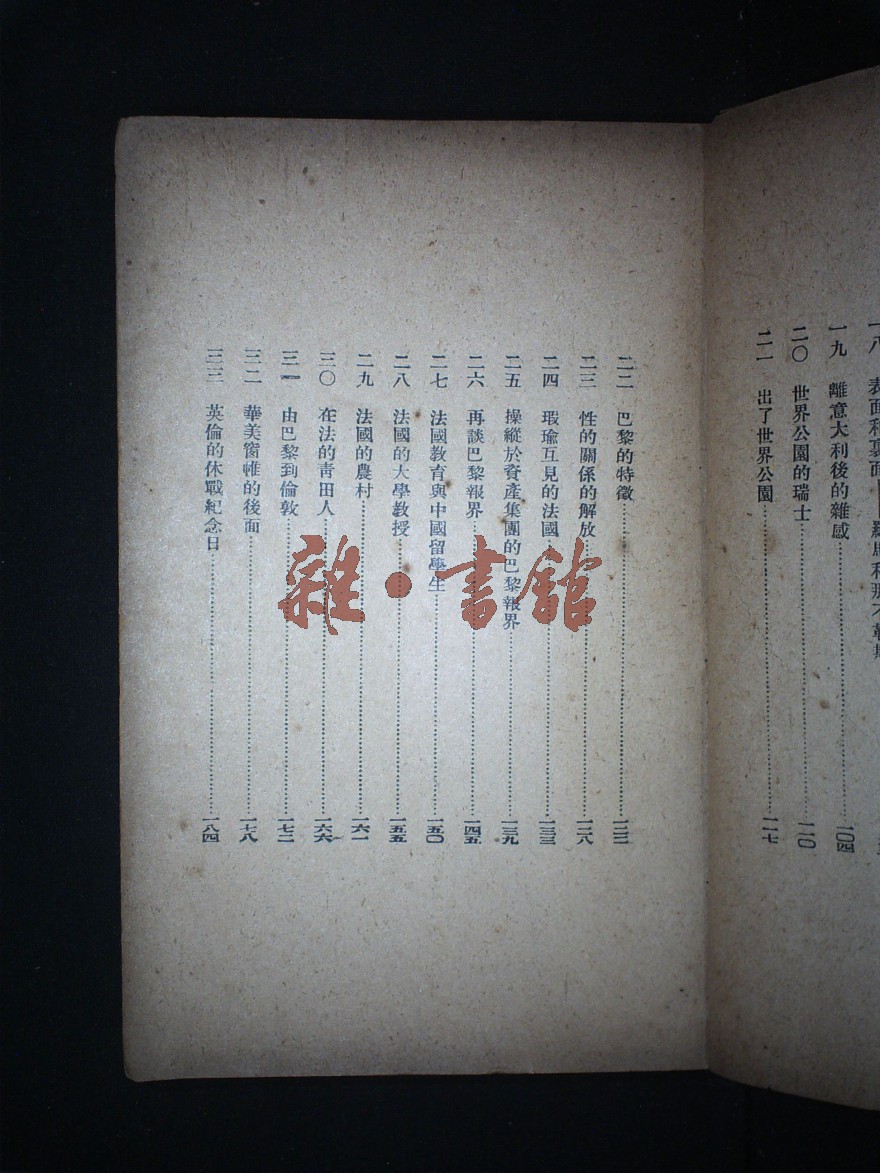 一八 表面和裏面
一九 離意大利後的雜感……一〇四
二〇 世界公園的瑞士……一一〇
二一 出了世界公園……一一七
二二 巴黎的特徵……一二三
二三 性的關係的解放……一二八
二四 瑕瑜互見的法國……一三三
二五 操縱於資產集團的巴黎報界……一三九
二六 再談巴黎報界……一四五
二七 法國教育與中國留學生……一五〇
二八 法國的大學教授……一五五
二九 法國的農村……一六一
三〇 在法的青田人……一六六
三一 由巴黎到倫敦……一七二
三二 華美窗帷的後面……一七八
三三 英倫的休戰紀念日……一八四
雜·書館